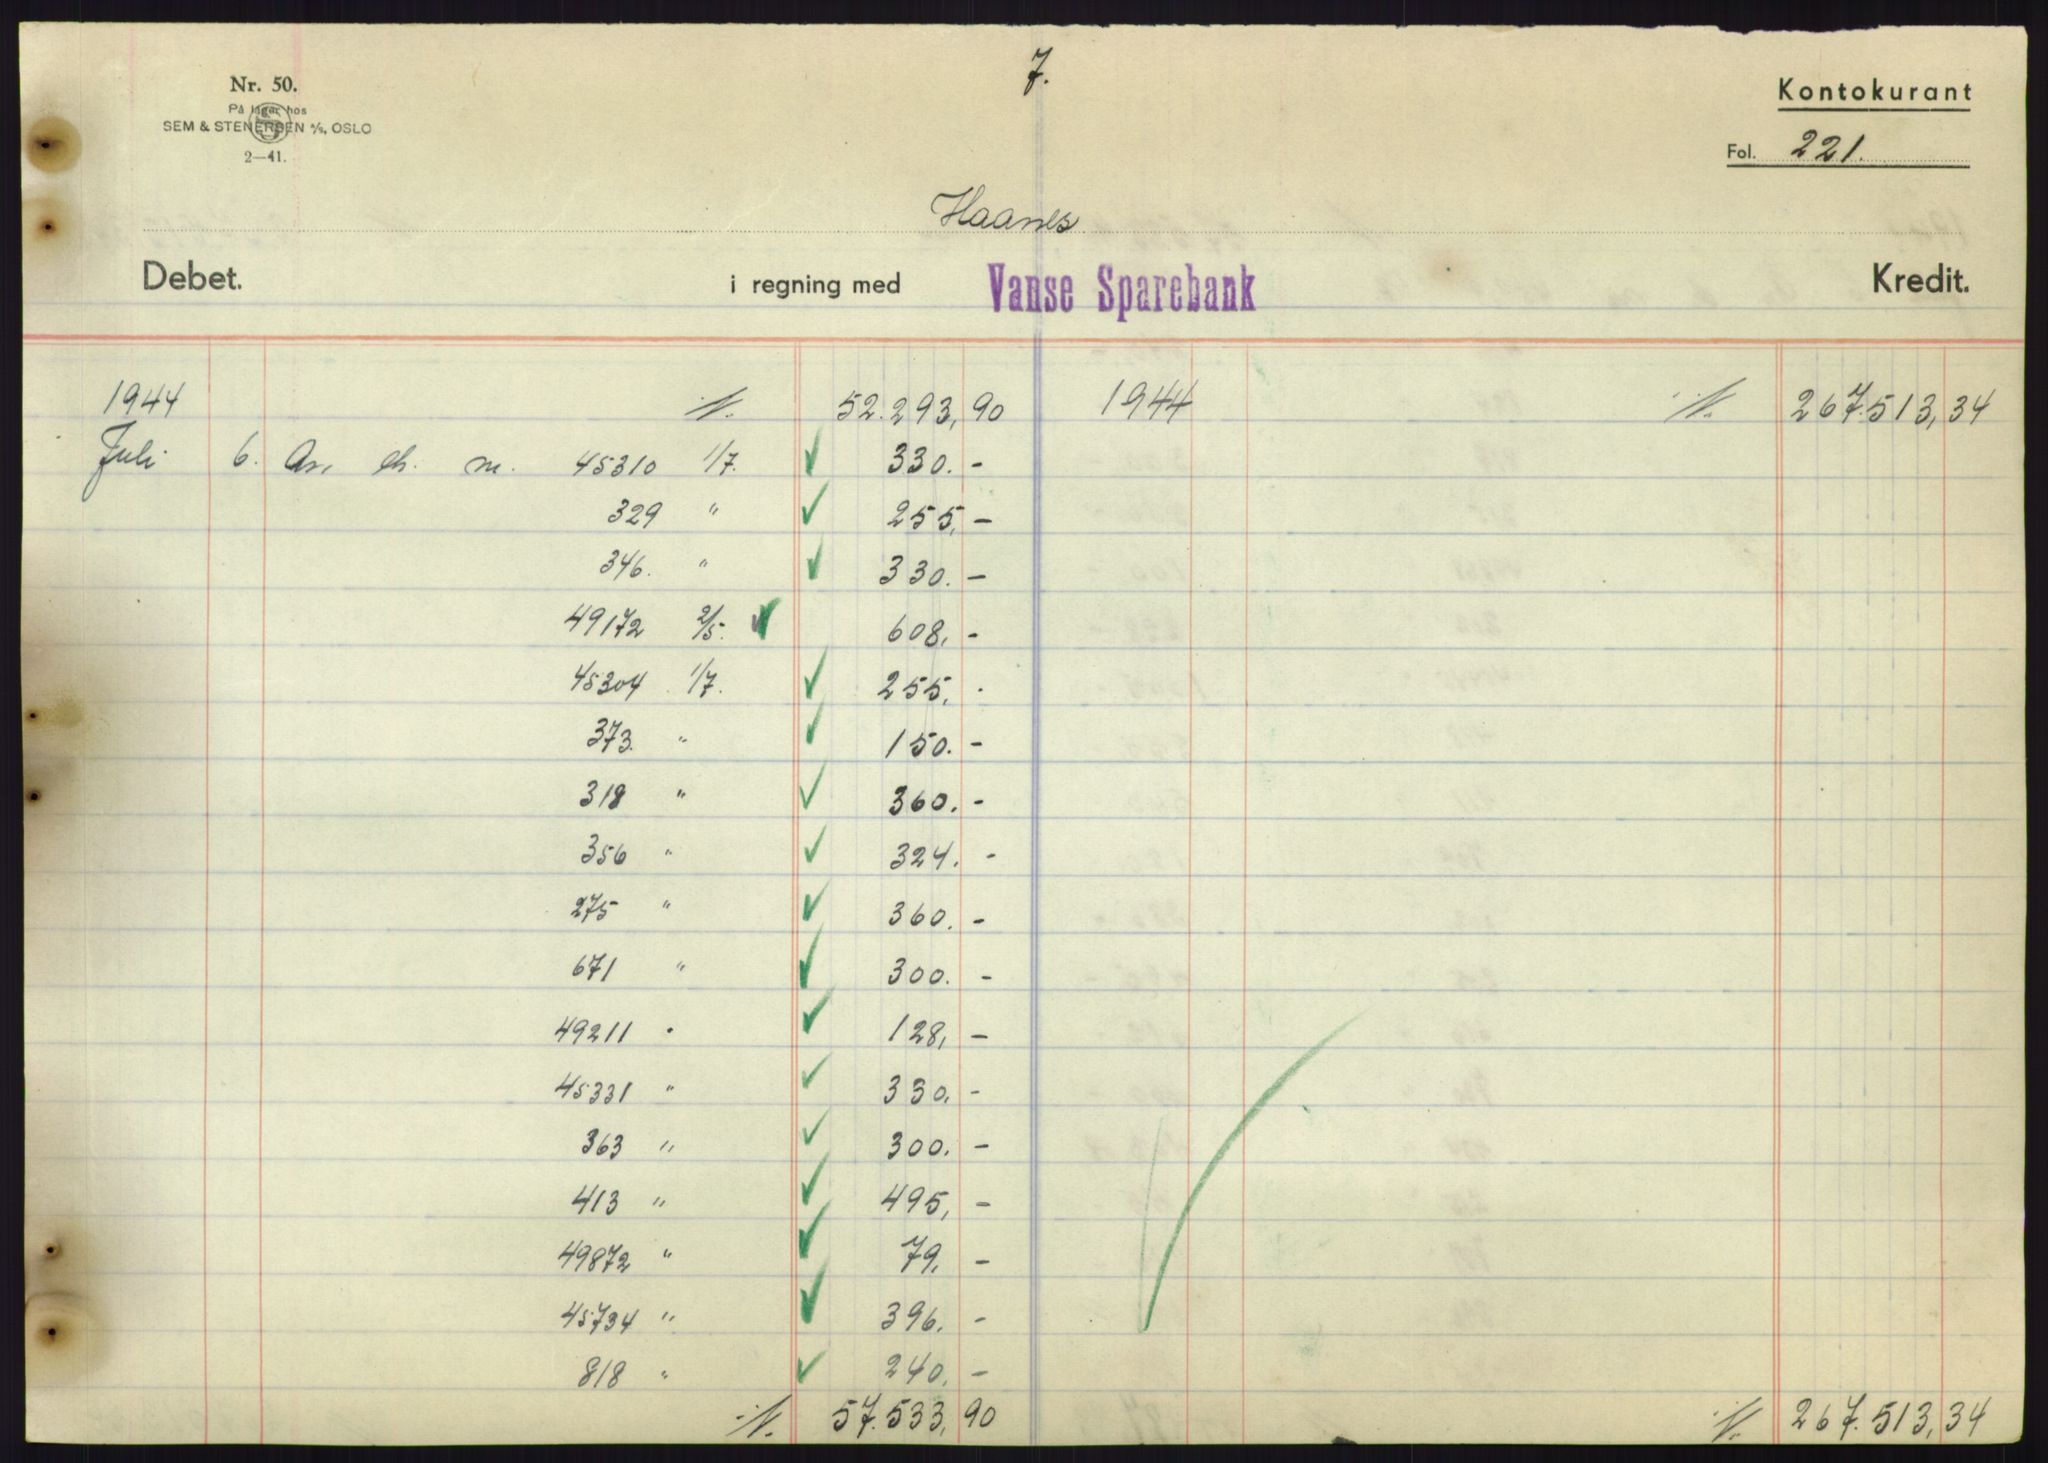 7.
Nr. 50.
På lager hos
SEM & STENERSEN A/S, OSLO
2—41.
Kontokurant
Fol. 221.
Haanes
Debet. i regning med Vanse Sparebank Kredit.
1944 52.293,90 1944 267.513,34
Juli 6. An ch. m. 45310 1/7. 330.-
329 " 255,-
346. " 330.-
49172 2/5. 608,-
45304 1/7. 255,-
373. " 150.-
318 " 360.-
356 " 324.-
275 " 360.-
671 " 300.-
49211 " 128,-
45331 " 330,-
363 " 300.-
413 " 495,-
49872 " 79,-
45734 " 396.-
818 " 240,-
57.533,90 267.513,34